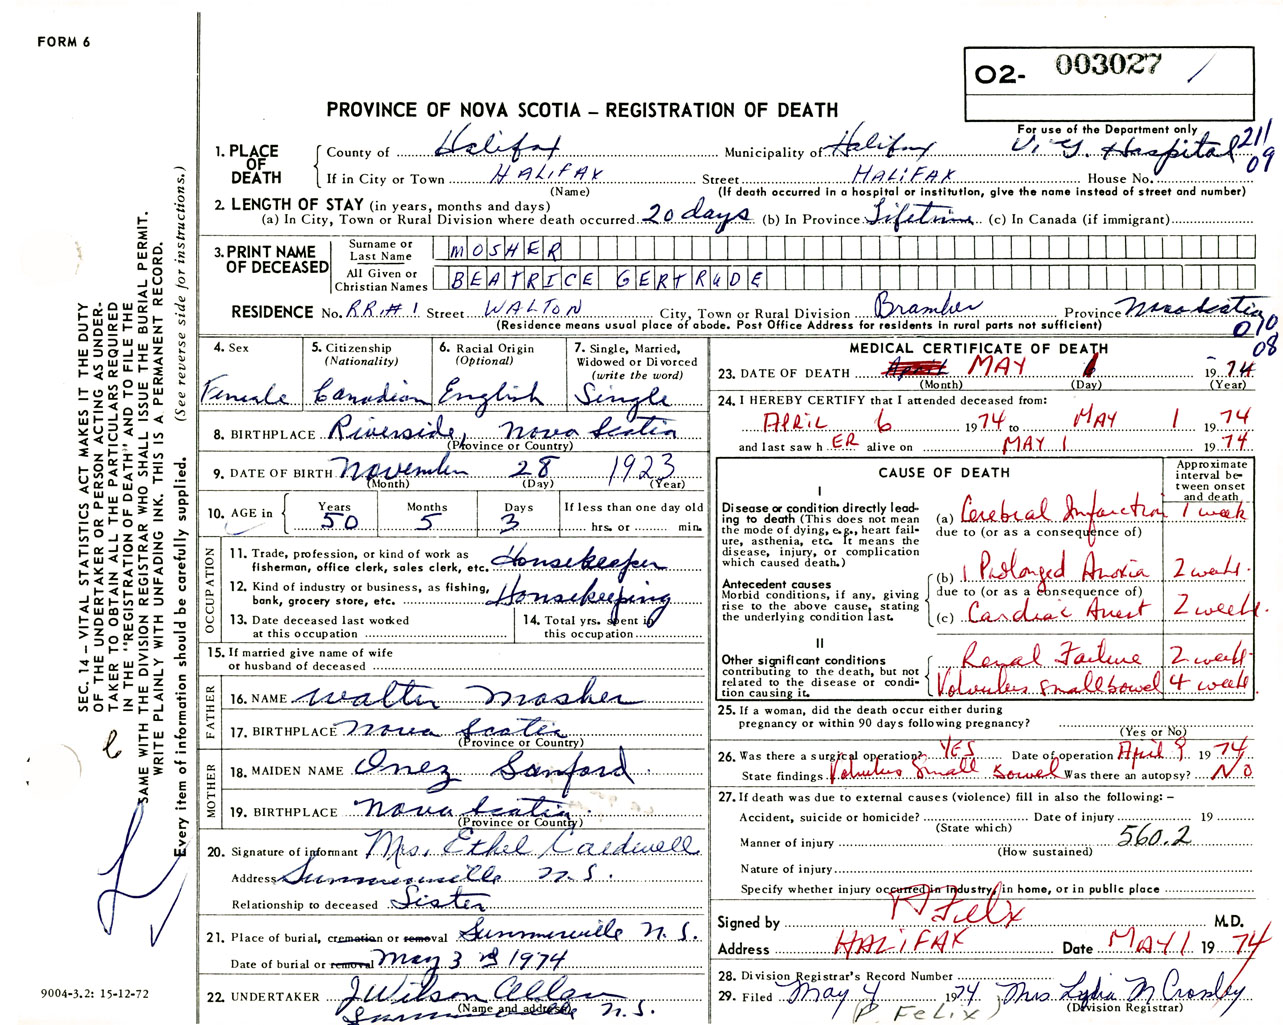 FORM 6
O2- 003027 /
PROVINCE OF NOVA SCOTIA – REGISTRATION OF DEATH
For use of the Department only
1. PLACE OF DEATH
County of Halifax Municipality of Halifax V. G. Hospital 211 09
If in City or Town HALIFAX Street HALIFAX House No.
(Name) (If death occurred in a hospital or institution, give the name instead of street and number)
2. LENGTH OF STAY (in years, months and days)
(a) In City, Town or Rural Division where death occurred 20 days (b) In Province Lifetime (c) In Canada (if immigrant)
3. PRINT NAME OF DECEASED
Surname or Last Name MOSHER
All Given or Christian Names BEATRICE GERTRUDE
RESIDENCE No. RR.#1 Street WALTON City, Town or Rural Division Bramber Province Nova Scotia
(Residence means usual place of abode. Post Office Address for residents in rural parts not sufficient)
010 08
4. Sex Female
5. Citizenship (Nationality) Canadian
6. Racial Origin (Optional) English
7. Single, Married, Widowed or Divorced (write the word) Single
8. BIRTHPLACE Riverside, Nova Scotia
(Province or Country)
9. DATE OF BIRTH November 28 1923
(Month) (Day) (Year)
10. AGE in Years 50 Months 5 Days 3 If less than one day old hrs. or min.
OCCUPATION
11. Trade, profession, or kind of work as fisherman, office clerk, sales clerk, etc. Housekeeper
12. Kind of industry or business, as fishing, bank, grocery store, etc. Housekeeping
13. Date deceased last worked at this occupation
14. Total yrs. spent in this occupation
15. If married give name of wife or husband of deceased
FATHER
16. NAME Walter Mosher
17. BIRTHPLACE Nova Scotia
(Province or Country)
MOTHER
18. MAIDEN NAME Onez Sanford
19. BIRTHPLACE Nova Scotia
(Province or Country)
20. Signature of informant Mrs. Ethel Caldwell
Address Summerville N.S.
Relationship to deceased Sister
21. Place of burial, cremation or removal Summerville N.S.
Date of burial or removal May 3 rd 1974
22. UNDERTAKER J Wilson Allan
(Name and address) Summerville N.S.
MEDICAL CERTIFICATE OF DEATH
23. DATE OF DEATH April MAY 1 1974
(Month) (Day) (Year)
24. I HEREBY CERTIFY that I attended deceased from:
APRIL 6 1974 to MAY 1 1974
and last saw h ER alive on MAY 1 1974
CAUSE OF DEATH
Approximate interval between onset and death
I
Disease or condition directly leading to death (This does not mean the mode of dying, e.g., heart failure, asthenia, etc. It means the disease, injury, or complication which caused death.)
(a) Cerebral Infarction 1 week
due to (or as a consequence of)
Antecedent causes
Morbid conditions, if any, giving rise to the above cause, stating the underlying condition last.
(b) Prolonged Anoxia 2 weeks.
due to (or as a consequence of)
(c) Cardiac Arrest 2 weeks.
II
Other significant conditions contributing to the death, but not related to the disease or condition causing it.
Renal Failure 2 weeks
Volvulus small bowel 4 weeks
25. If a woman, did the death occur either during pregnancy or within 90 days following pregnancy?
(Yes or No)
26. Was there a surgical operation? YES Date of operation April 9 1974
State findings Volvulus Small Bowel Was there an autopsy? NO
27. If death was due to external causes (violence) fill in also the following: –
Accident, suicide or homicide? Date of injury 19
(State which)
Manner of injury 560.2
(How sustained)
Nature of injury
Specify whether injury occurred in industry, in home, or in public place
Signed by P Felix M.D.
Address HALIFAX Date MAY 1 1974
28. Division Registrar's Record Number
29. Filed May 4 1974 Mrs Lydia M Crossley
(P. FELIX) (Division Registrar)
SEC. 14 – VITAL STATISTICS ACT MAKES IT THE DUTY
OF THE UNDERTAKER OR PERSON ACTING AS UNDER-
TAKER TO OBTAIN ALL THE PARTICULARS REQUIRED
IN THE "REGISTRATION OF DEATH" AND TO FILE THE
SAME WITH THE DIVISION REGISTRAR WHO SHALL ISSUE THE BURIAL PERMIT.
WRITE PLAINLY WITH UNFADING INK. THIS IS A PERMANENT RECORD.
Every item of information should be carefully supplied. (See reverse side for instructions.)
9004-3.2: 15-12-72